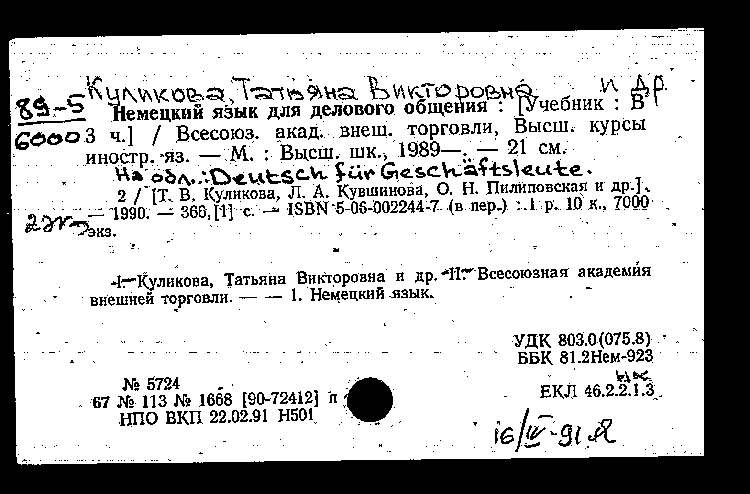 Куликова, Татьяна Викторовна и др.
89-5 Немецкий язык для делового общения : [Учебник : В
6000 3 ч.] / Всесоюз. акад. внеш. торговли, Высш. курсы
иностр. яз. — М. : Высш. шк., 1989—. — 21 см.
На обл.: Deutsch für Geschäftsleute.
2 / [Т. В. Куликова, Л. А. Кувшинова, О. Н. Пилиповская и др.].
— 1990. — 366,[1] с. — ISBN 5-06-002244-7 (в пер.) : 1 р. 10 к., 7000
экз.
I. Куликова, Татьяна Викторовна и др. II. Всесоюзная академия
внешней торговли. — — 1. Немецкий язык.
УДК 803.0(075.8)
ББК 81.2Нем-923
№ 5724
67 № 113 № 1668 [90-72412] п
ЕКЛ 46.2.2.1.3
НПО ВКП 22.02.91 Н501
16/IV-91